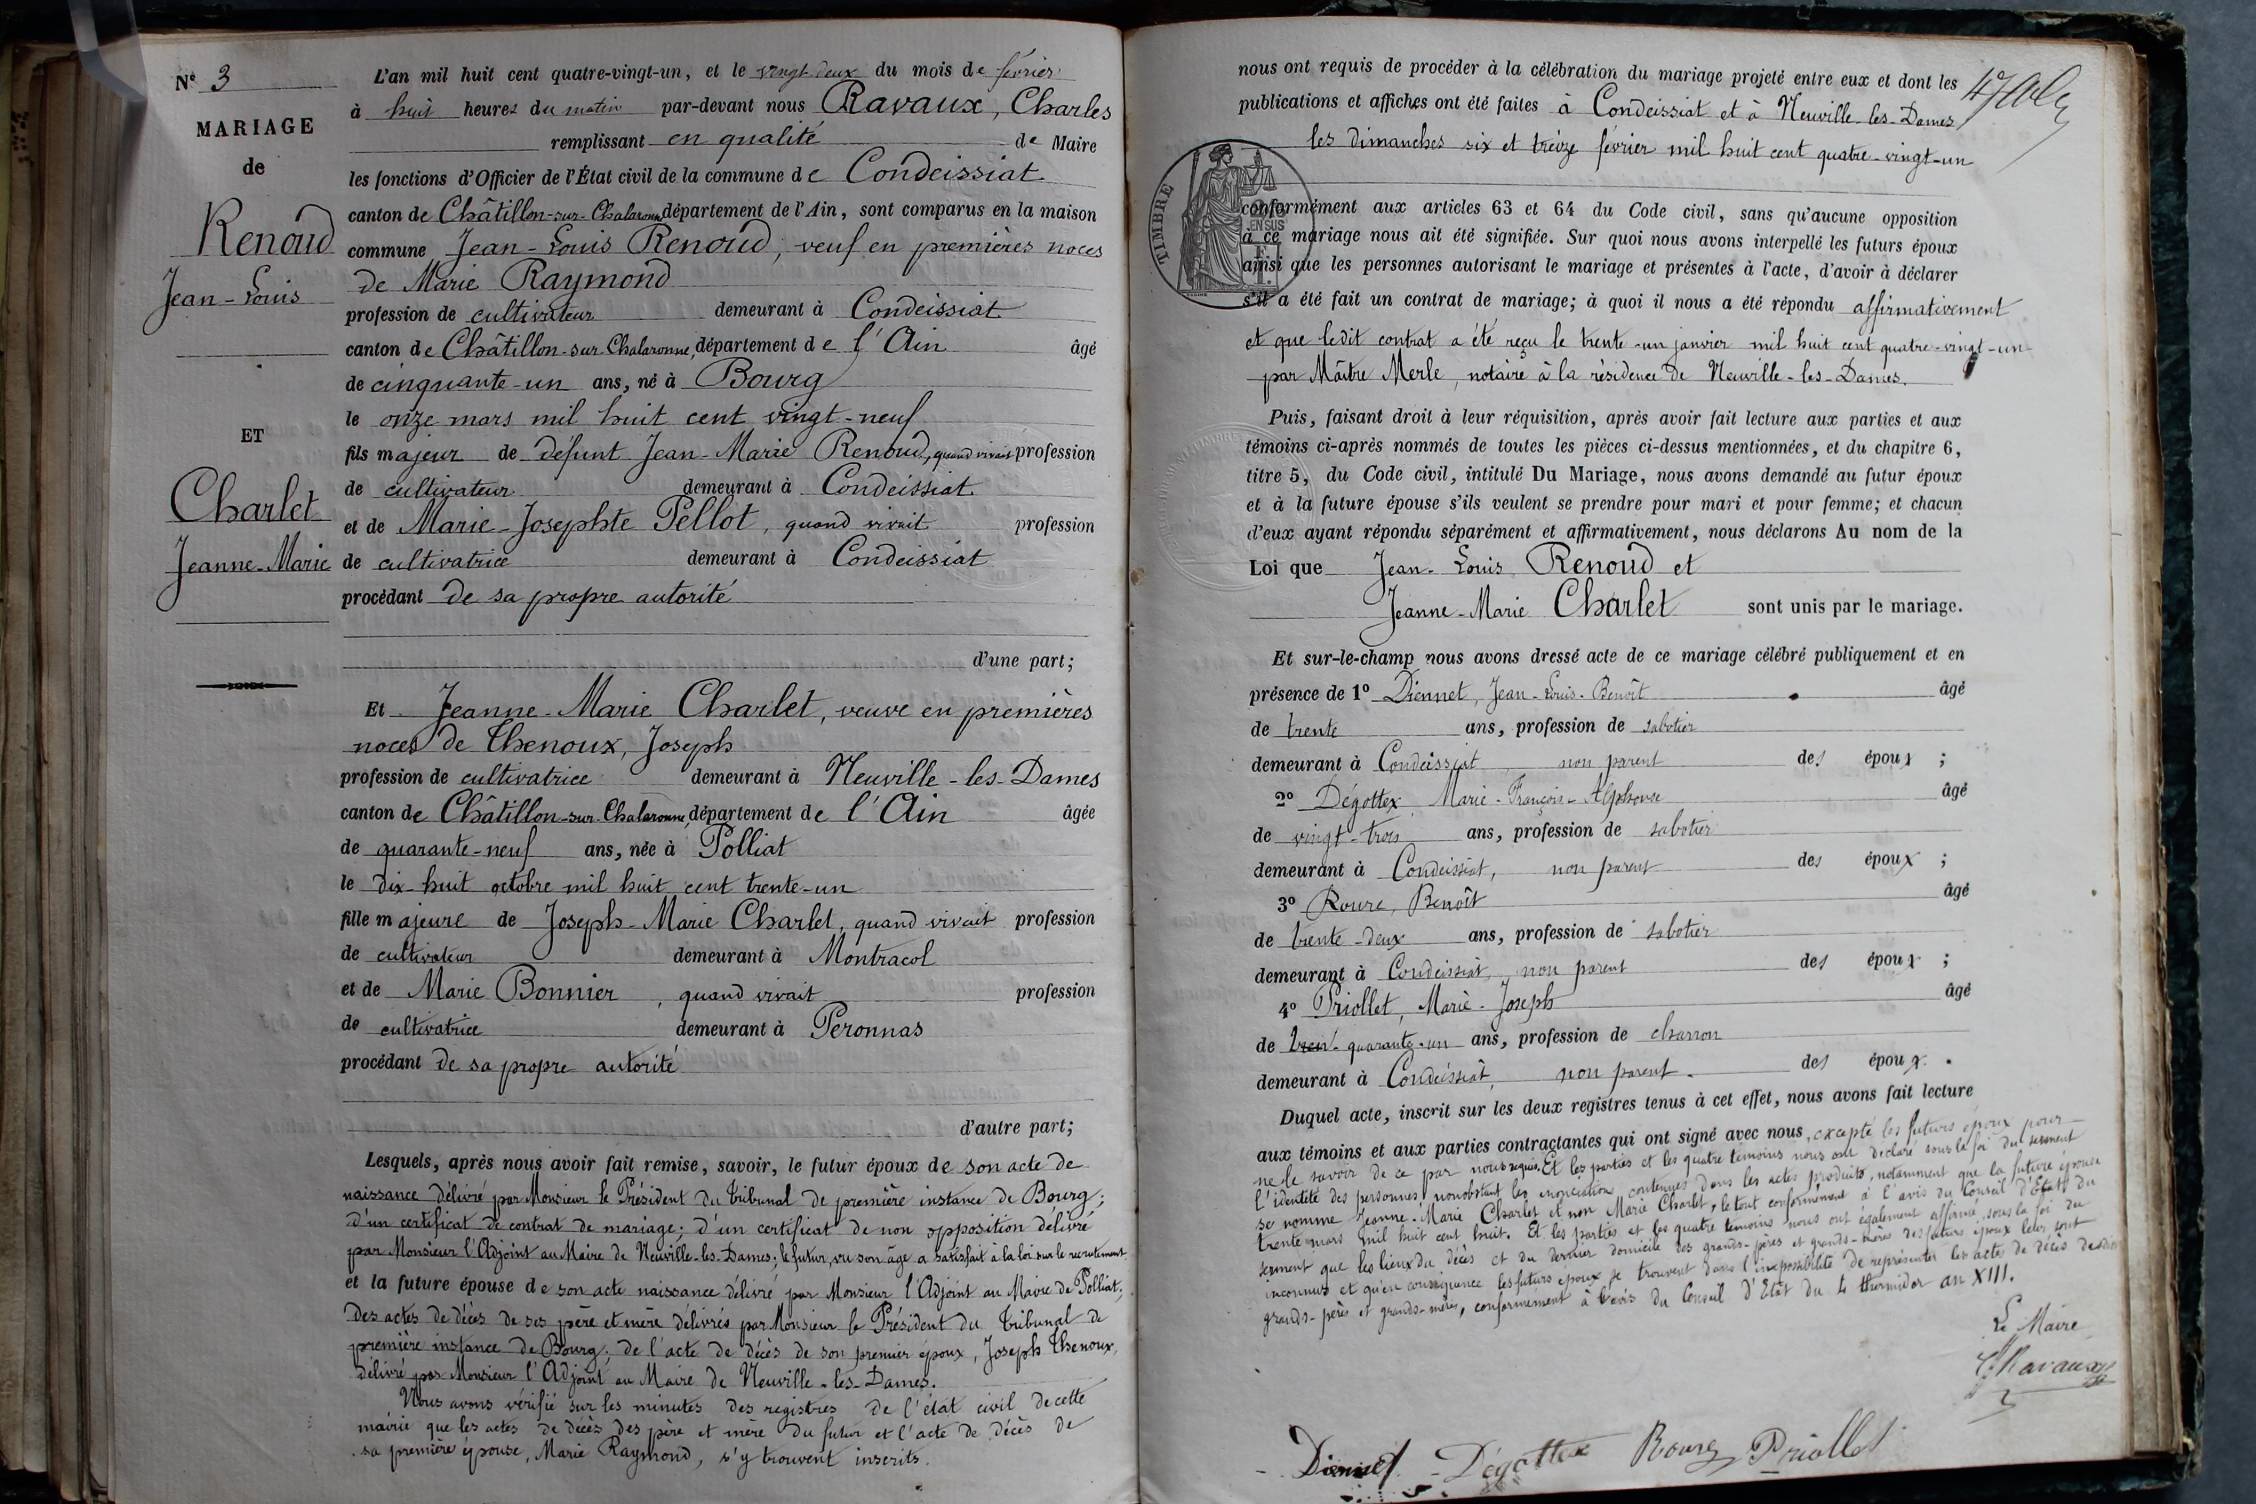 N° 3
MARIAGE
de
Renoud
Jean-Louis
ET
Charlet
Jeanne-Marie
L'an mil huit cent quatre-vingt-un, et le vingt-deux du mois de février
à huit heures du matin par-devant nous Ravaux, Charles
remplissant en qualité de Maire
les fonctions d'Officier de l'État civil de la commune de Condeissiat
canton de Châtillon-sur-Chalaronne, département de l'Ain, sont comparus en la maison
commune Jean-Louis Renoud, veuf en premières noces
de Marie Raymond
profession de cultivateur demeurant à Condeissiat
canton de Châtillon-sur-Chalaronne, département de l'Ain âgé
de cinquante-un ans, né à Bourg
le onze mars mil huit cent vingt-neuf
fils majeur de défunt Jean-Marie Renoud, quand vivait profession
de cultivateur demeurant à Condeissiat
et de Marie-Josephte Pellot, quand vivait profession
de cultivatrice demeurant à Condeissiat
procédant de sa propre autorité
d'une part;
Et Jeanne-Marie Charlet, veuve en premières
noces de Thenoux, Joseph
profession de cultivatrice demeurant à Neuville-les-Dames
canton de Châtillon-sur-Chalaronne, département de l'Ain âgée
de quarante-neuf ans, née à Polliat
le dix-huit octobre mil huit cent trente-un
fille majeure de Joseph-Marie Charlet, quand vivait profession
de cultivateur demeurant à Montracol
et de Marie Bonnier, quand vivait profession
de cultivatrice demeurant à Peronnas
procédant de sa propre autorité
d'autre part;
Lesquels, après nous avoir fait remise, savoir, le futur époux de son acte de
naissance délivré par Monsieur le Président du Tribunal de première instance de Bourg;
d'un certificat de contrat de mariage; d'un certificat de non opposition délivré
par Monsieur l'Adjoint au Maire de Neuville-les-Dames; le futur, vu son âge a satisfait à la loi sur le recrutement
et la future épouse de son acte naissance délivré par Monsieur l'Adjoint au Maire de Polliat;
des actes de décès de ses père et mère délivrés par Monsieur le Président du Tribunal de
première instance de Bourg; de l'acte de décès de son premier époux, Joseph Thenoux,
délivré par Monsieur l'Adjoint au Maire de Neuville-les-Dames.
Nous avons vérifié sur les minutes des registres de l'état civil de cette
mairie que les actes de décès des père et mère du futur et l'acte de décès de
sa première épouse, Marie Raymond, s'y trouvent inscrits.
nous ont requis de procéder à la célébration du mariage projeté entre eux et dont les
publications et affiches ont été faites à Condeissiat et à Neuville-les-Dames
les dimanches six et treize février mil huit cent quatre-vingt-un
TIMBRE
EN SUS
conformément aux articles 63 et 64 du Code civil, sans qu'aucune opposition
à ce mariage nous ait été signifiée. Sur quoi nous avons interpellé les futurs époux
ainsi que les personnes autorisant le mariage et présentes à l'acte, d'avoir à déclarer
s'il a été fait un contrat de mariage; à quoi il nous a été répondu affirmativement
et que ledit contrat a été reçu le trente-un janvier mil huit cent quatre-vingt-un
par Maître Merle, notaire à la résidence de Neuville-les-Dames.
Puis, faisant droit à leur réquisition, après avoir fait lecture aux parties et aux
témoins ci-après nommés de toutes les pièces ci-dessus mentionnées, et du chapitre 6,
titre 5, du Code civil, intitulé Du Mariage, nous avons demandé au futur époux
et à la future épouse s'ils veulent se prendre pour mari et pour femme; et chacun
d'eux ayant répondu séparément et affirmativement, nous déclarons Au nom de la
Loi que Jean-Louis Renoud et
Jeanne-Marie Charlet sont unis par le mariage.
Et sur-le-champ nous avons dressé acte de ce mariage célébré publiquement et en
présence de 1° Diennet, Jean-Louis-Benoît âgé
de trente ans, profession de sabotier
demeurant à Condeissiat, non parent des époux ;
2° Dégottex Marie-François-Alphonse âgé
de vingt-trois ans, profession de sabotier
demeurant à Condeissiat, non parent des époux ;
3° Roure, Benoît âgé
de trente-deux ans, profession de sabotier
demeurant à Condeissiat, non parent des époux ;
4° Priollet, Marie-Joseph âgé
de quarante-un ans, profession de charron
demeurant à Condeissiat, non parent. des époux.
Duquel acte, inscrit sur les deux registres tenus à cet effet, nous avons fait lecture
aux témoins et aux parties contractantes qui ont signé avec nous, excepté les futurs époux pour
ne le savoir de ce par nous requis. Et les parties et les quatre témoins nous ont déclaré sous la foi du serment
l'identité des personnes nonobstant les énonciations contenues dans les actes produits, notamment que la future épouse
se nomme Jeanne-Marie Charlet et non Marie Charlet, le tout conformément à l'avis du Conseil d'Etat du
trente mars mil huit cent huit. Et les parties et les quatre témoins nous ont également affirmé sous la foi du
serment que les lieux du décès et du dernier domicile des grands-pères et grands-mères des futurs époux leur sont
inconnus et qu'en conséquence les futurs époux se trouvent dans l'impossibilité de représenter les actes de décès desdits
grands-pères et grands-mères, conformément à l'avis du Conseil d'Etat du 4 thermidor an XIII.
Le Maire
C. Ravaux
Diennet Dégottex Roure Priollet